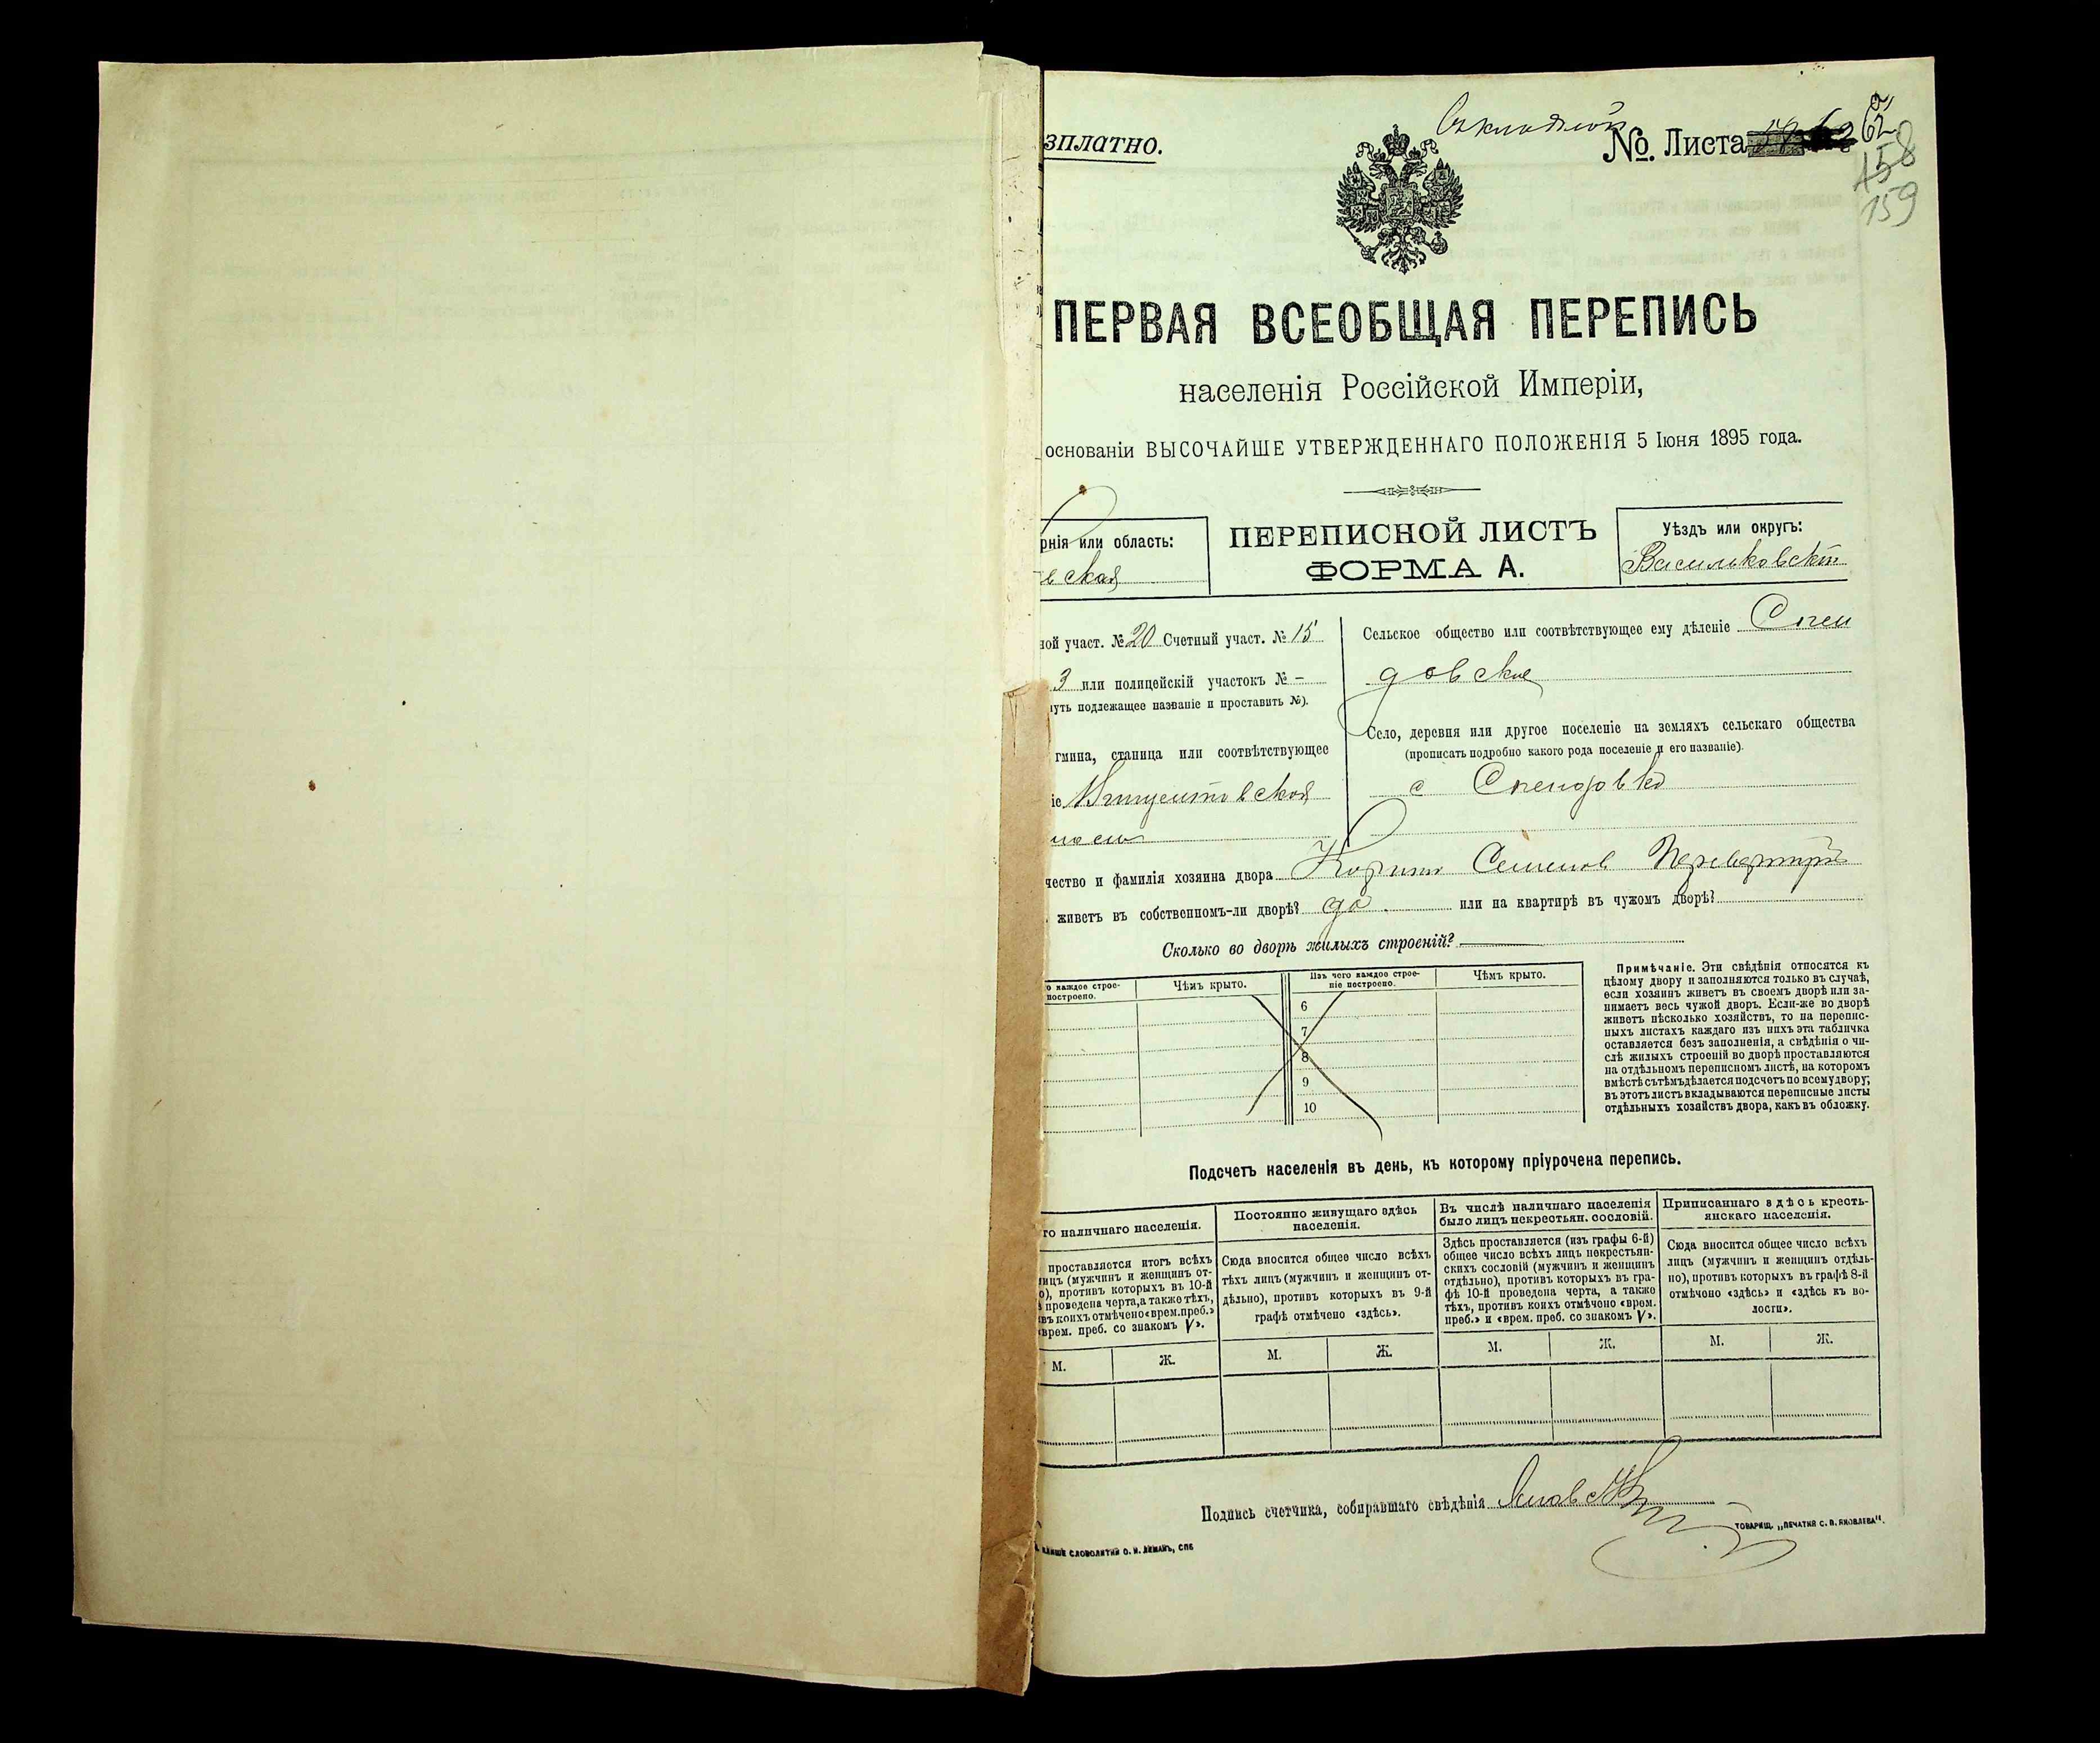 зплатно.
№. Листа
62
158
159
ПЕРВАЯ ВСЕОБЩАЯ ПЕРЕПИСЬ
населенія Россійской Имперіи,
основаніи ВЫСОЧАЙШЕ УТВЕРЖДЕННАГО ПОЛОЖЕНІЯ 5 Іюня 1895 года.
рнія или область:
вская
ПЕРЕПИСНОЙ ЛИСТЪ
ФОРМА А.
Уѣздъ или округъ:
Васильковскій
ной участ. № 20 Счетный участ. № 15
3 или полицейскій участокъ № –
нуть подлежащее названіе и проставить №).
гмина, станица или соотвѣтствующее
іе
Сельское общество или соотвѣтствующее ему дѣленіе Спен
довское
Село, деревня или другое поселеніе на земляхъ сельскаго общества
(прописать подробно какого рода поселеніе и его названіе).
с Спендовка
чество и фамилія хозяина двора Семенов
живетъ въ собственномъ-ли дворѣ? да. или на квартирѣ въ чужомъ дворѣ?
Сколько во дворѣ жилыхъ строеній?
о каждое строе-
построено.
Чѣмъ крыто.
Изъ чего каждое строе-
ніе построено.
Чѣмъ крыто.
6
7
8
9
10
Примѣчаніе. Эти свѣдѣнія относятся къ
цѣлому двору и заполняются только въ случаѣ,
если хозяинъ живетъ въ своемъ дворѣ или за-
нимаетъ весь чужой дворъ. Если-же во дворѣ
живетъ нѣсколько хозяйствъ, то на перепис-
ныхъ листахъ каждаго изъ нихъ эта табличка
оставляется безъ заполненія, а свѣдѣнія о чи-
слѣ жилыхъ строеній во дворѣ проставляются
на отдѣльномъ переписномъ листѣ, на которомъ
вмѣстѣ съ тѣмъ дѣлается подсчетъ по всему двору;
въ этотъ листъ вкладываются переписные листы
отдѣльныхъ хозяйствъ двора, какъ въ обложку.
Подсчетъ населенія въ день, къ которому пріурочена перепись.
го наличнаго населенія.
проставляется итогъ всѣхъ
лицъ (мужчинъ и женщинъ от-
о), противъ которыхъ въ 10-й
проведена черта, а также тѣхъ,
въ коихъ отмѣчено «врем. преб.»
«врем. преб. со знакомъ V».
Постоянно живущаго здѣсь
населенія.
Сюда вносится общее число всѣхъ
тѣхъ лицъ (мужчинъ и женщинъ от-
дѣльно), противъ которыхъ въ 9-й
графѣ отмѣчено «здѣсь».
Въ числѣ наличнаго населенія
было лицъ некрестьян. сословій.
Здѣсь проставляется (изъ графы 6-й)
общее число всѣхъ лицъ некрестьян-
скихъ сословій (мужчинъ и женщинъ
отдѣльно), противъ которыхъ въ гра-
фѣ 10-й проведена черта, а также
тѣхъ, противъ коихъ отмѣчено «врем.
преб.» и «врем. преб. со знакомъ V».
Приписаннаго здѣсь кресть-
янскаго населенія.
Сюда вносится общее число всѣхъ
лицъ (мужчинъ и женщинъ отдѣль-
но), противъ которыхъ въ графѣ 8-й
отмѣчено «здѣсь» и «здѣсь къ во-
лости».
М. Ж. М. Ж. М. Ж. М. Ж.
Подпись счетчика, собиравшаго свѣдѣнія
СЛОВОЛИТНИ О. И. ЛЕМАНЪ, СПБ
ТОВАРИЩ. „ПЕЧАТНЯ С. П. ЯКОВЛЕВА“.